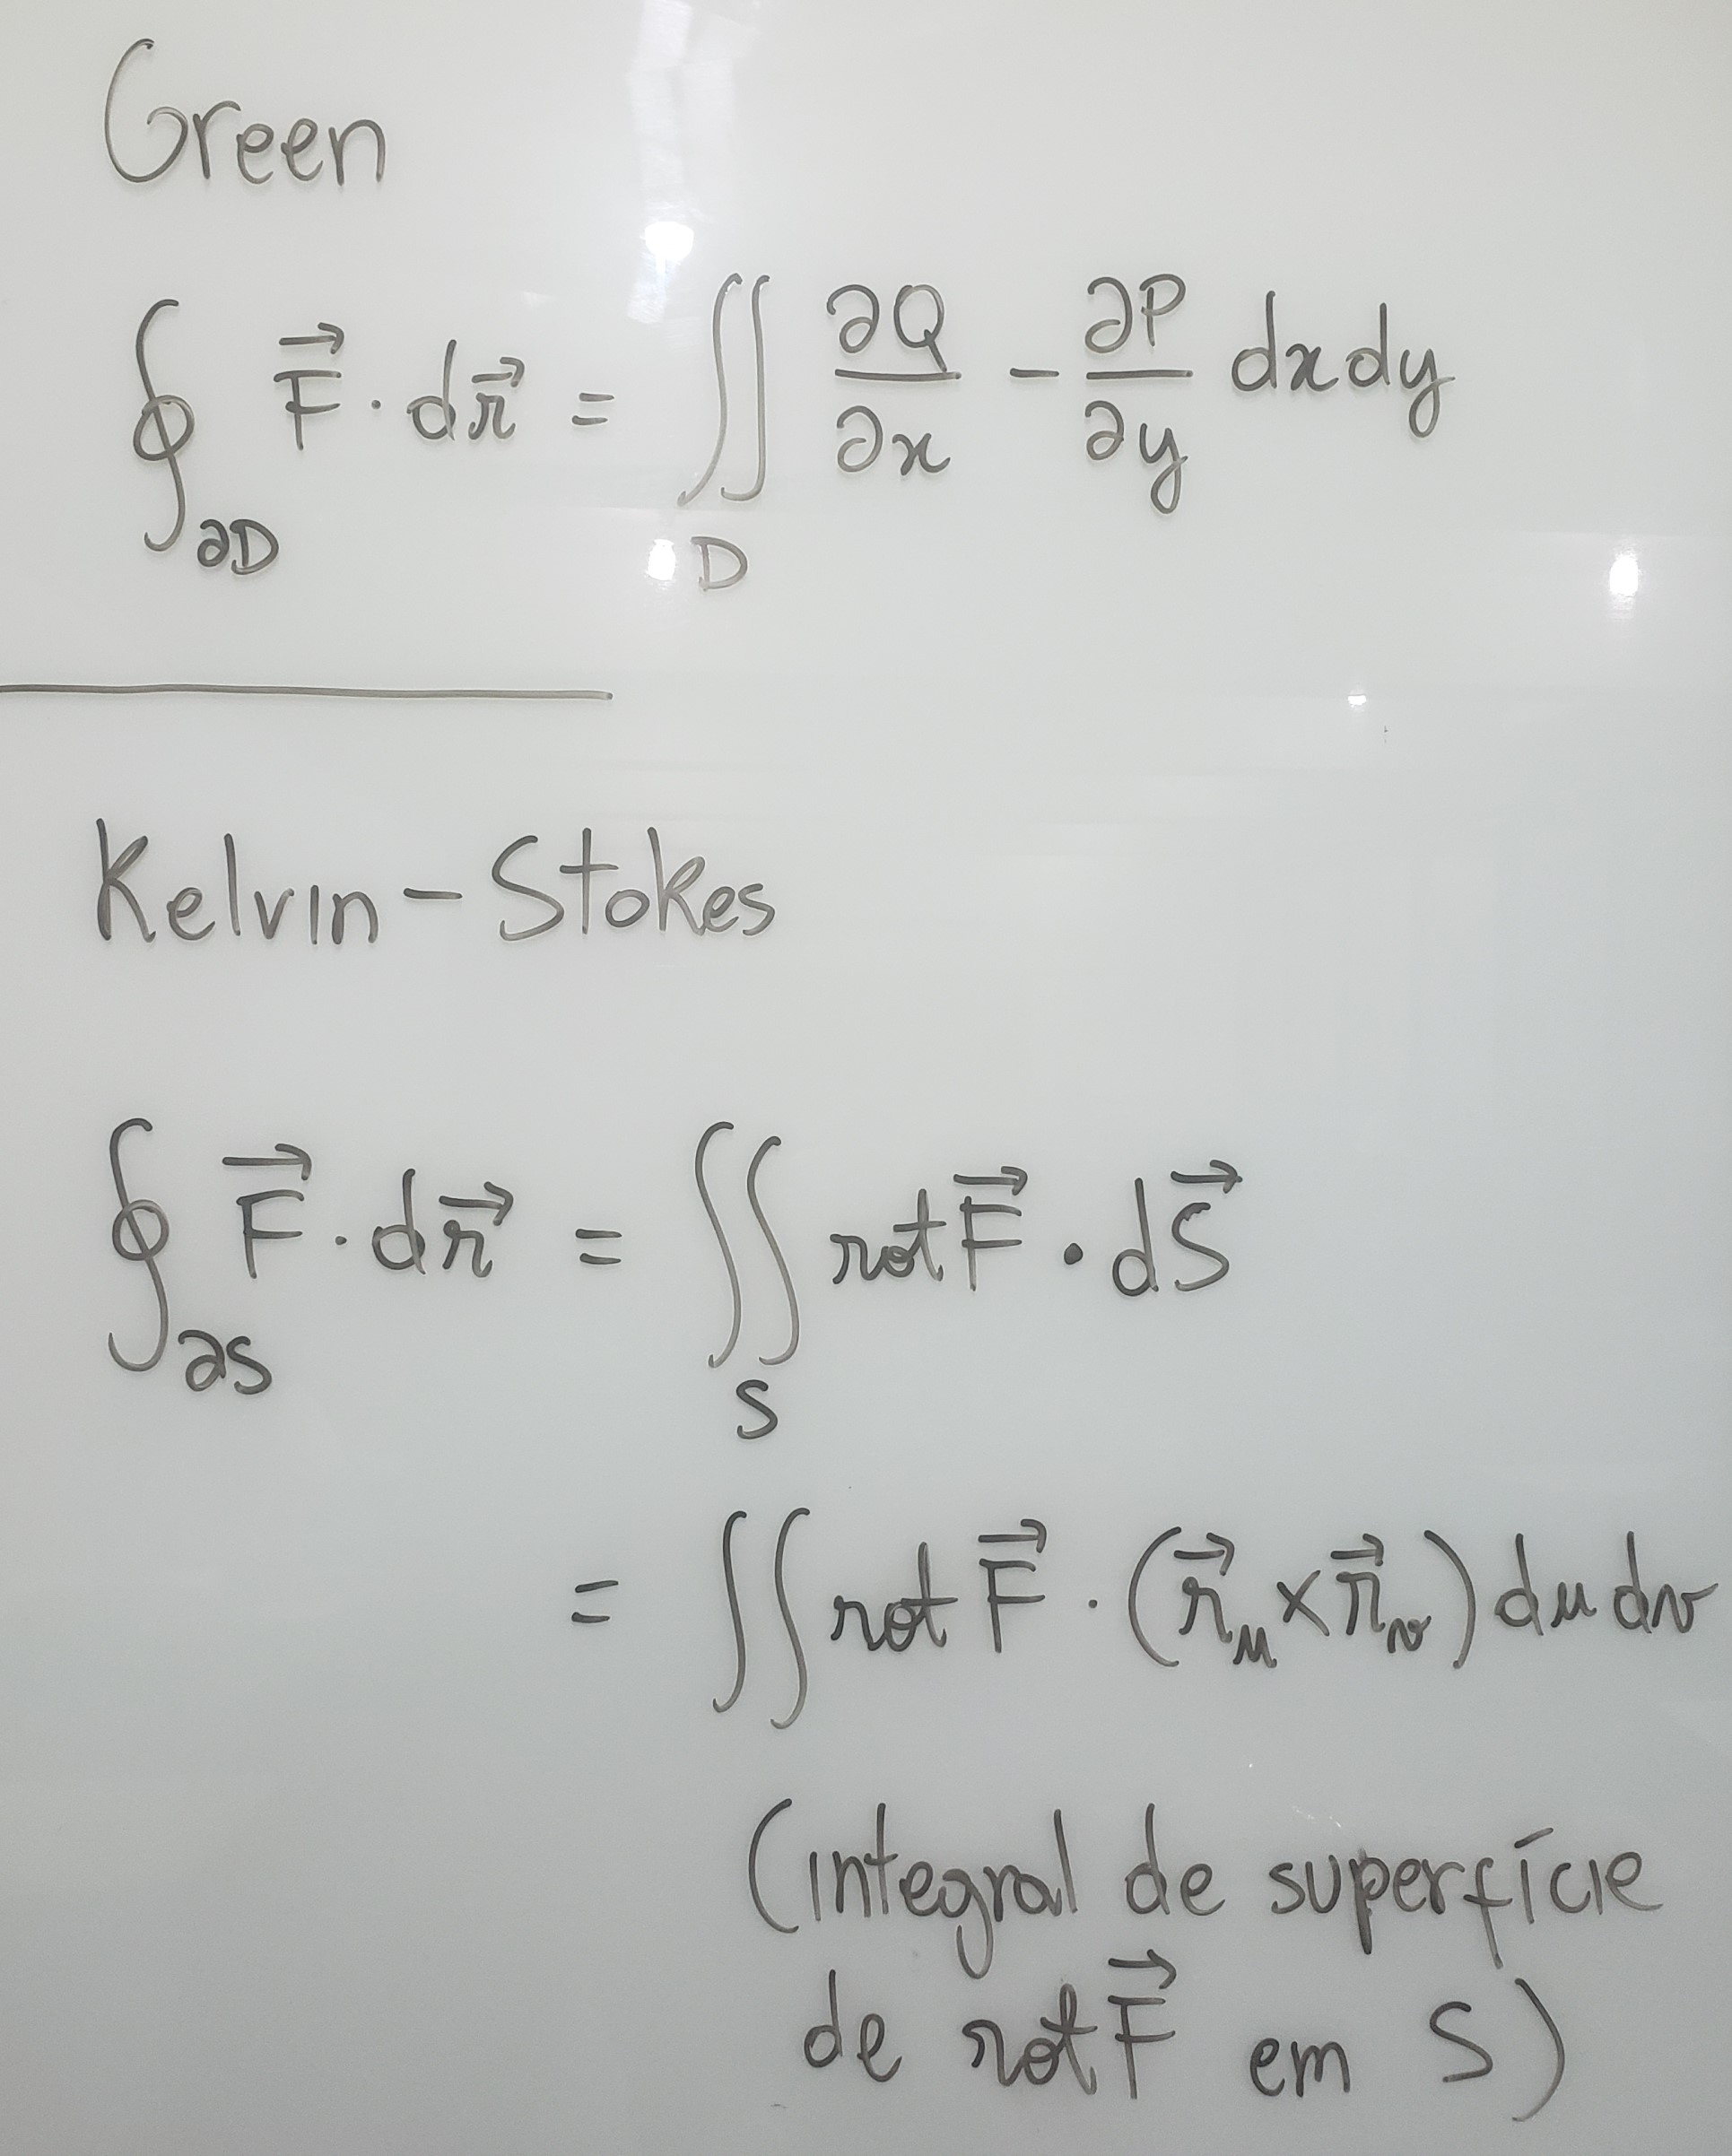 Green
∮_∂D F⃗ · dr⃗ = ∬_D ∂Q/∂x − ∂P/∂y dx dy
Kelvin-Stokes
∮_∂S F⃗ · dr⃗ = ∬_S rot F⃗ · dS⃗
= ∬ rot F⃗ · (r⃗_u × r⃗_v) du dv
(integral de superfície
de rot F⃗ em S)